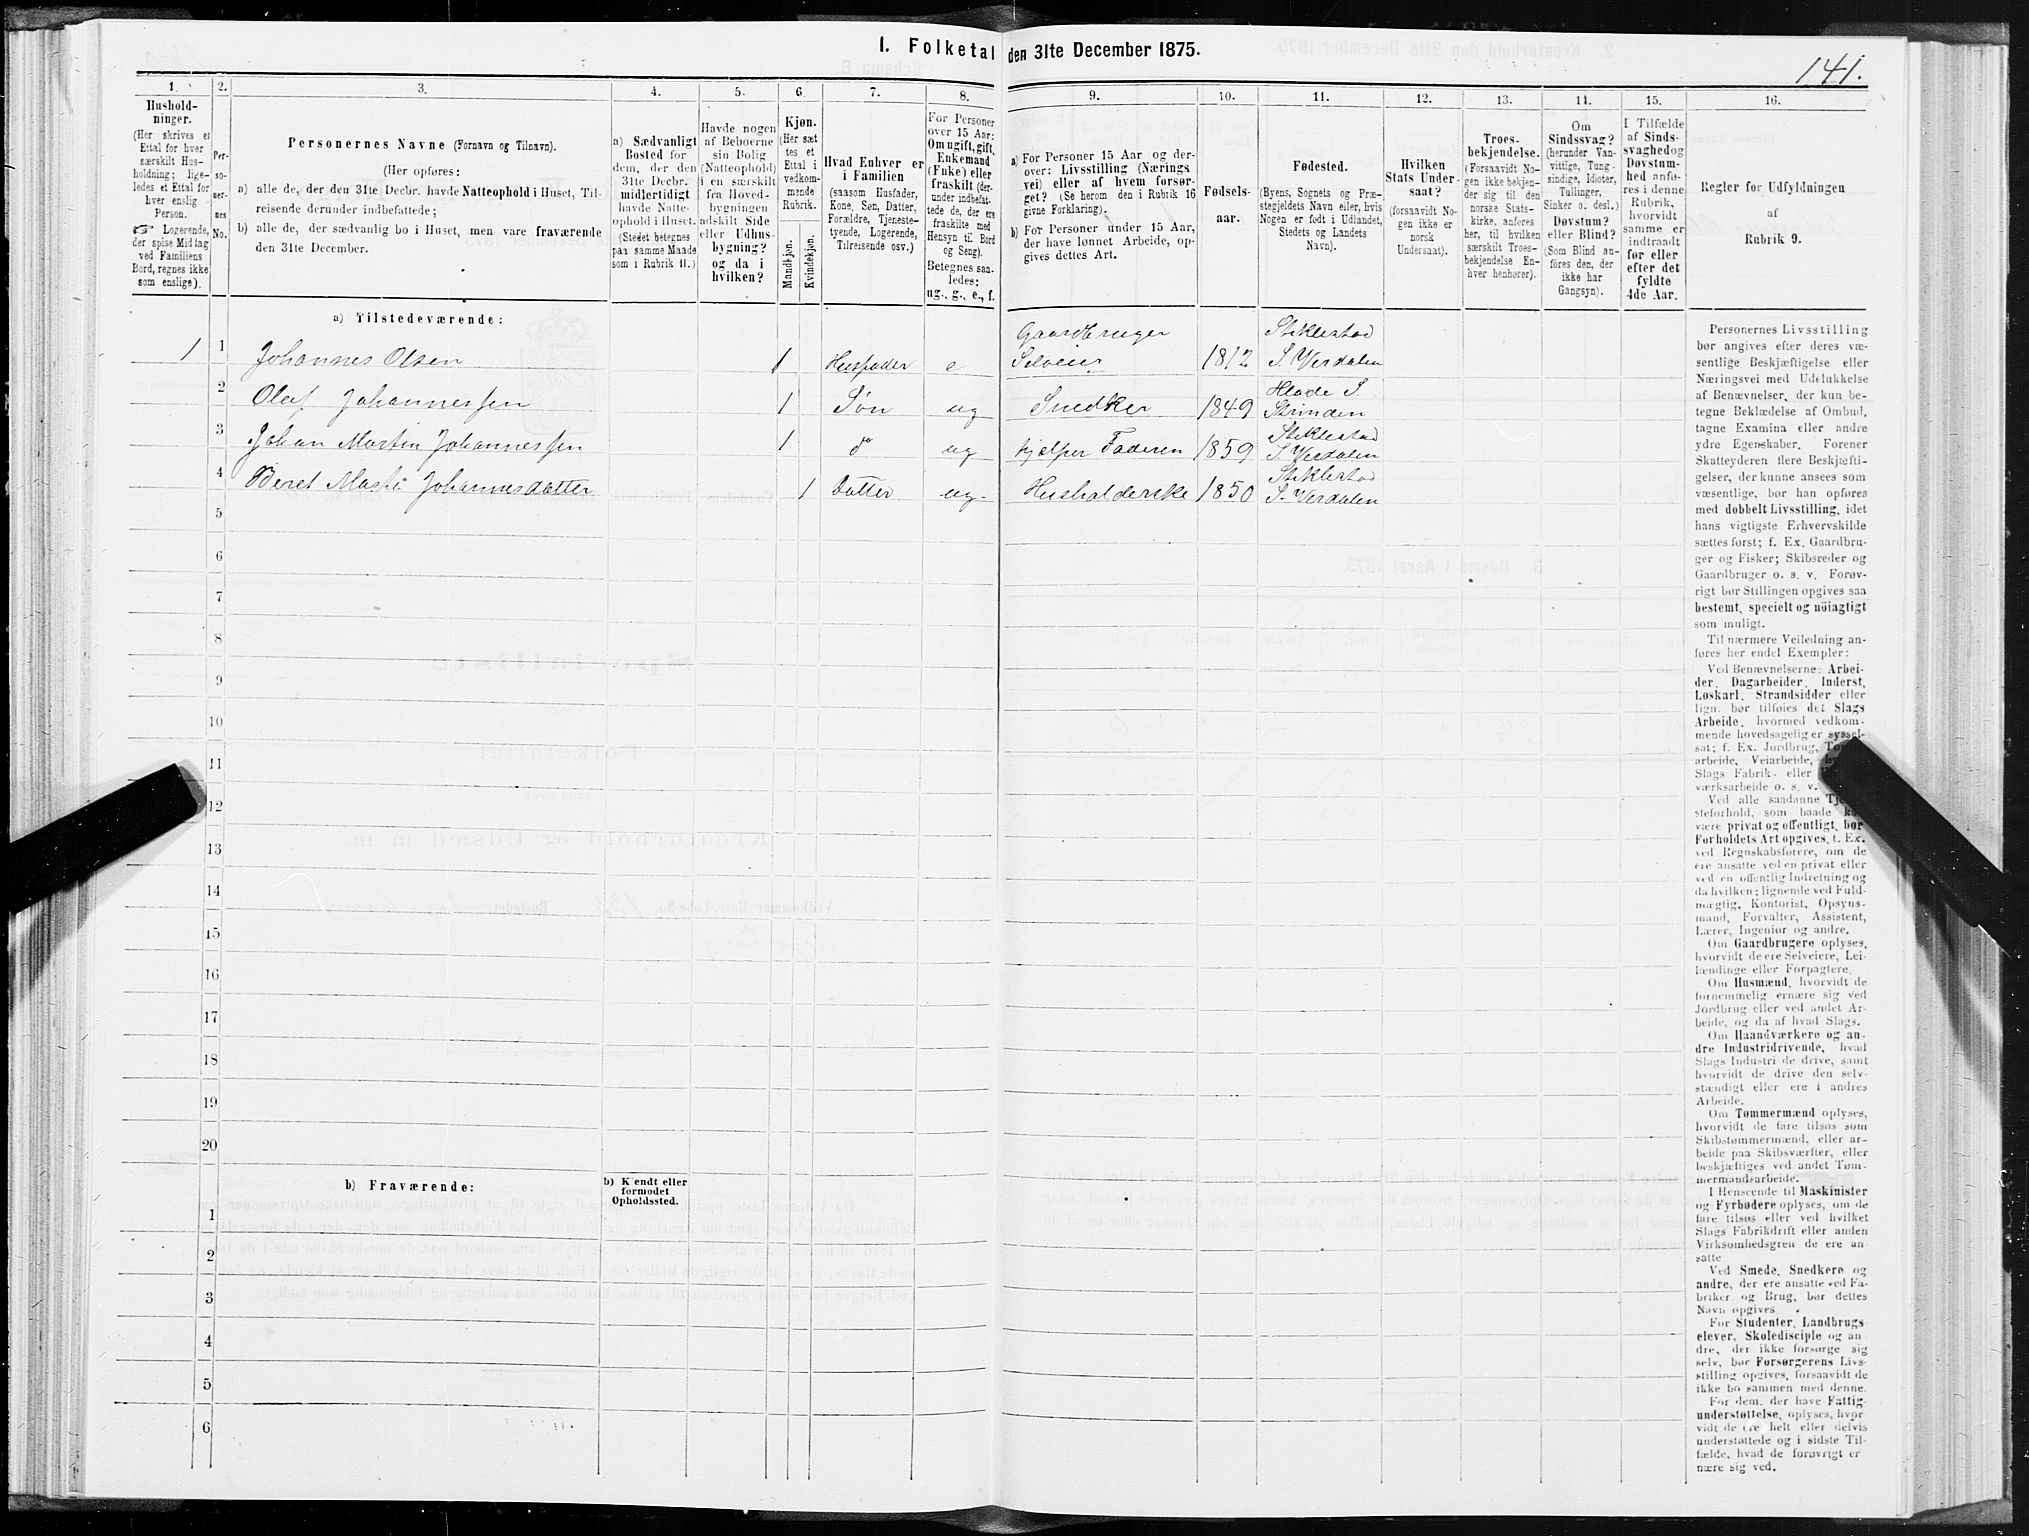 I. Folketal den 31te December 1875.
141.
1.
Hushold-
ninger.
(Her skrives et
Ettal for hver
særskilt Hus-
holdning; lige-
ledes et Ettal for
hver enslig
Person.
☞ Logerende,
der spise Middag
ved Familiens
Bord, regnes ikke
som enslige).
2.
Per-
so-
ner-
nes
No.
3.
Personernes Navne (Fornavn og Tilnavn).
(Her opføres:
a) alle de, der den 31te Decbr. havde Natteophold i Huset, Til-
reisende derunder indbefattede;
b) alle de, der sædvanlig bo i Huset, men vare fraværende
den 31te December.
4.
a) Sædvanligt
Bosted for
dem, der den
31te Decbr.
midlertidigt
havde Natte-
ophold i Huset.
(Stedet betegnes
paa samme Maade
som i Rubrik 11.)
5.
Havde nogen
af Beboerne
sin Bolig
(Natteophold)
i en særskilt
fra Hoved-
bygningen
adskilt Side
eller Udhus-
bygning?
og da i
hvilken?
6.
Kjøn.
(Her sæt
tes et
Ettal i
vedkom-
mende
Rubrik.
Mandkjøn.
Kvindekjøn.
7.
Hvad Enhver er
i Familien
(saasom Husfader,
Kone, Søn, Datter,
Forældre, Tjeneste-
tyende, Logerende,
Tilreisende osv.)
8.
For Personer
over 15 Aar:
Om ugift, gift,
Enkemand
(Enke) eller
fraskilt (der-
under indbefat-
tede de, der ere
fraskilte med
Hensyn til Bord
og Seng).
Betegnes saa-
ledes:
ug., g., e., f.
9.
a) For Personer 15 Aar og der-
over: Livsstilling (Nærings
vei) eller af hvem forsør-
get? (Se herom den i Rubrik 16
givne Forklaring).
b) For Personer under 15 Aar,
der have lønnet Arbeide, op-
gives dettes Art.
10.
Fødsels-
aar.
11.
Fødested.
(Byens, Sognets og Præ-
stegjeldets Navn eller, hvis
Nogen er født i Udlandet,
Stedets og Landets
Navn).
12.
Hvilken
Stats Under-
saat?
(forsaavidt No-
gen ikke er
norsk
Undersaat).
13.
Troes-
bekjendelse.
(Forsaavidt No-
gen ikke bekjen-
der sig til den
norske Stats-
kirke, anføres
her, til hvilken
særskilt Troes-
bekjendelse En-
hver henhører).
14.
Om
Sindssvag?
(herunder Van-
vittige, Tung-
sindige, Idioter,
Tullinger,
Sinker o. desl.)
Døvstum?
eller Blind?
(Som Blind an-
føres den, der
ikke har
Gangsyn).
15.
I Tilfælde
af Sinds-
svaghed og
Døvstum-
hed anfø-
res i denne
Rubrik,
hvorvidt
samme er
indtraadt
før eller
efter det
fyldte
4de Aar.
16.
Regler for Udfyldningen
af
Rubrik 9.
a) Tilstedeværende:
Gaardbruger Stiklestad
1 1 Johannes Olsen 1 Husfader e Selveier 1812 S. Verdalen
2 Olaf Johannessen 1 Søn ug Snedker 1849 Hlade S. Strinden
3 Johan Martin Johannessen 1 do ug hjelper Faderen 1859 Stiklestad S. Verdalen
4 Beret Marti Johannesdatter 1 Datter ug. Husholderske 1850 Stiklestad S. Verdalen
5
6
7
8
9
10
11
12
13
14
15
16
17
18
19
20
b) Fraværende:
b) Kjendt eller
formodet
Opholdssted.
1
2
3
4
5
6
Personernes Livsstilling
bør angives efter deres væ-
sentlige Beskjæftigelse eller
Næringsvei med Udelukkelse
af Benævnelser, der kun be-
tegne Beklædelse af Ombud,
tagne Examina eller andre
ydre Egenskaber. Forener
Skatteyderen flere Beskjæfti-
gelser, der kunne ansees som
væsentlige, bør han opføres
med dobbelt Livsstilling, idet
hans vigtigste Erhvervskilde
sættes først; f. Ex. Gaardbru-
ger og Fisker; Skibsreder og
Gaardbruger o. s. v. Forøv-
rigt bør Stillingen opgives saa
bestemt, specielt og nöiagtigt
som muligt.
Til nærmere Veiledning an-
føres her endel Exempler:
Ved Benævnelserne: Arbei-
der, Dagarbeider, Inderst,
Løskarl, Strandsidder eller
lign. bør tilføies det Slags
Arbeide, hvormed vedkom-
mende hovedsagelig er syssel-
sat; f. Ex. Jordbrug,
arbeide, Veiarbeide,
Slags Fabrik- eller
værksarbeide o. s. v.
Ved alle saadanne
steforhold, som baade
være privat og offentligt, bør
Forholdets Art opgives, t. Ex.
ved Regnskabsførere, om de
ere ansatte ved en privat eller
ved en offentlig Indretning og
da hvilken; lignende ved Fuld-
mægtig, Kontorist, Opsyns-
mand, Forvalter, Assistent,
Lærer, Ingeniør og andre.
Om Gaardbrugere oplyses,
hvorvidt de ere Selveiere, Lei-
lændinge eller Forpagtere.
Om Husmænd, hvorvidt de
fornemmelig ernære sig ved
Jordbrug eller ved andet Ar-
beide, og da af hvad Slags.
Om Haandværkere og an-
dre Industridrivende, hvad
Slags Industri de drive, samt
hvorvidt de drive den selv-
stændigt eller ere i andres
Arbeide.
Om Tømmermænd oplyses,
hvorvidt de fare tilsøs som
Skibstømmermænd, eller ar-
beide paa Skibsværfter, eller
beskjæftiges ved andet Tøm-
mermandsarbeide.
I Henseende til Maskinister
og Fyrbødere oplyses, om de
fare tilsøs eller ved hvilket
Slags Fabrikdrift eller anden
Virksomhedsgren de ere an-
satte
Ved Smede, Snedkere og
andre, der ere ansatte ved Fa-
briker og Brug, bør dettes
Navn opgives.
For Studenter, Landbrugs-
elever, Skoledisciple og an-
dre, der ikke forsørge sig
selv, bør Forsørgerens Livs-
stilling opgives, forsaavidt de
ikke bo sammen med denne.
For dem, der have Fattig-
understøttelse, oplyses, hvor-
vidt de ere helt eller delvis
understøttede og i sidste Til-
fælde, hvad de forøvrigt er
nære sig ved.